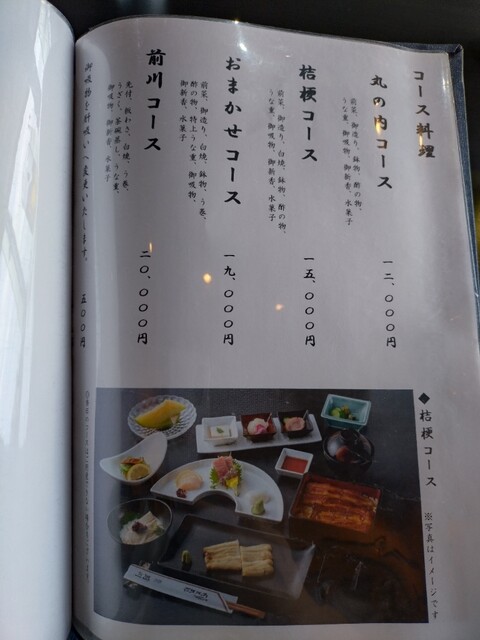 コース料理
丸の内コース
前菜、御造り、白焼、鉢物、酢の物、
うな重、御吸物、御新香、水菓子
一二、〇〇〇円
桔梗コース
前菜、御造り、白焼、鉢物、酢の物、
うな重、御吸物、御新香、水菓子
一五、〇〇〇円
おまかせコース
前菜、御造り、白焼、鉢物、う巻、
酢の物、特上うな重、御吸物、
御新香、水菓子
一九、〇〇〇円
前川コース
先付、板わさ、白焼、う巻、
うざく、茶碗蒸し、うな重、
御吸物、御新香、水菓子
二〇、〇〇〇円
御吸物を肝吸いへ変更いたします。
五〇〇円
◆桔梗コース
※写真はイメージです